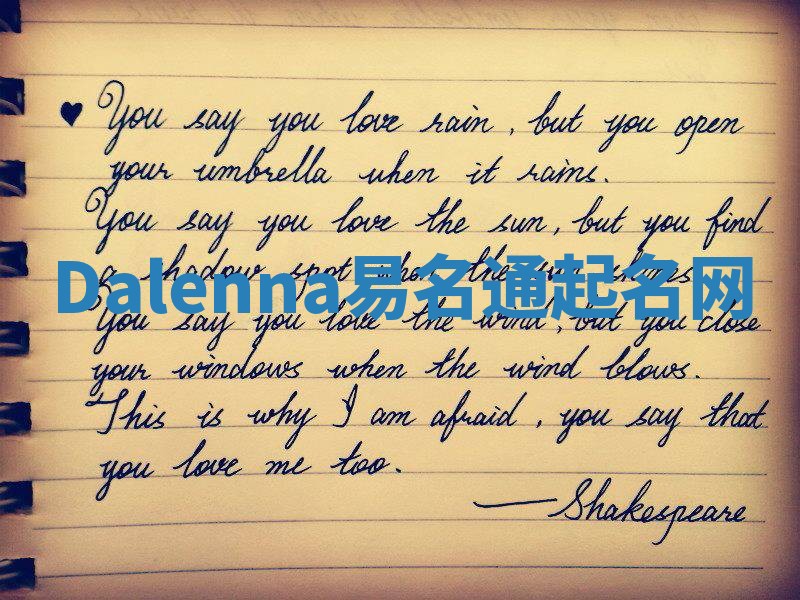 ♥ You say you love rain, but you open
your umbrella when it rains.
You say you love the sun, but you find
a shadow spot when the sun shines.
Dalenna易名通起名网
You say you love the wind, but you close
your windows when the wind blows.
This is why I am afraid, you say that
you love me too.
—Shakespeare